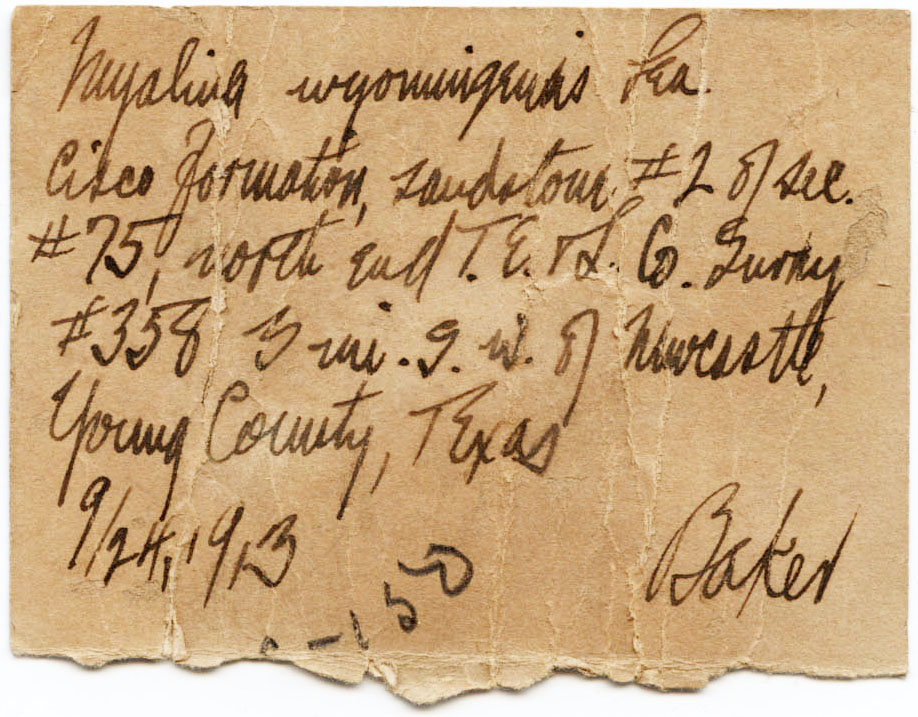 Myalina wyomingensis Lea.
Cisco formation, sandstone #2 of sec.
#75, north end T. E. & L. Co. Survey
#358 3 mi. S. W. of Newcastle,
Young County, Texas
9/24, 1913
Baker
-150